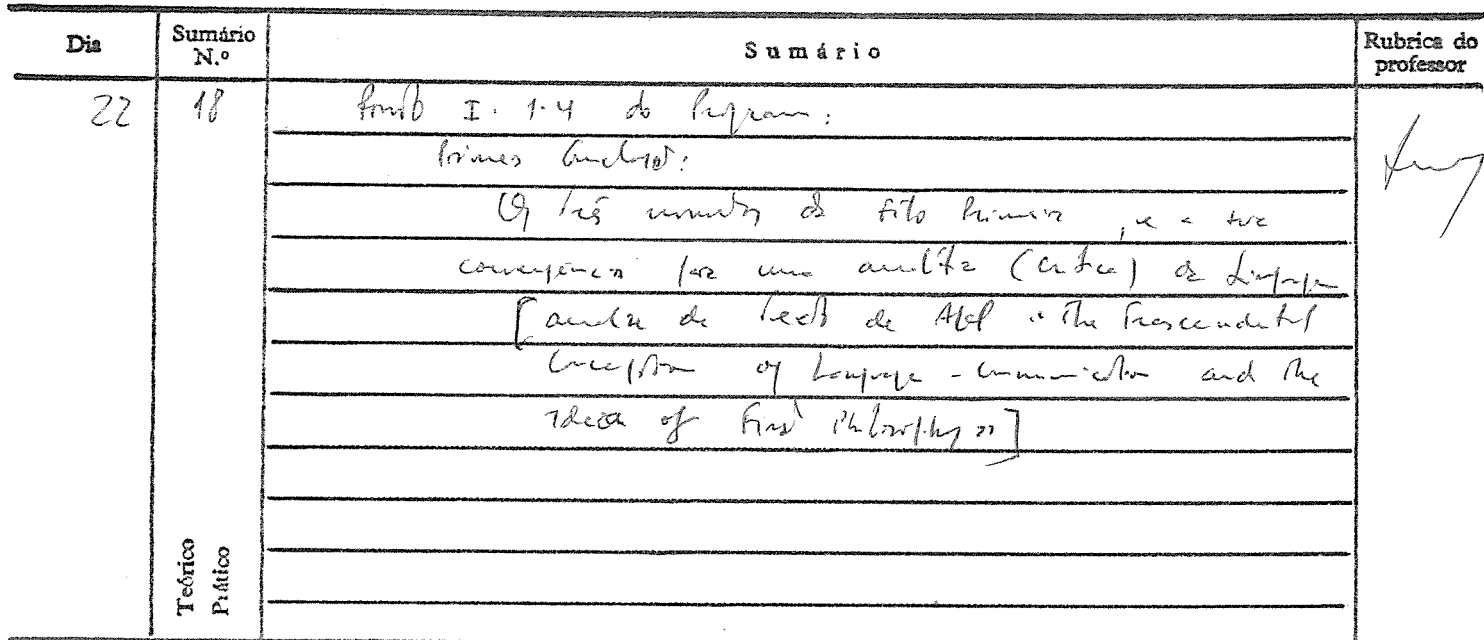 Dia Sumário N.º Sumário Rubrica do professor
22 18 Ponto I. 1.4 do Programa:
Primeira Conclusão:
Os três momentos da Filo Primeira, e a sua
convergência para uma analítica (crítica) da Linguagem
[análise de texto de Apel "The Trascendental
Conception of Language-Communication and the
Idea of First Philosophy"]
Teórico
Prático